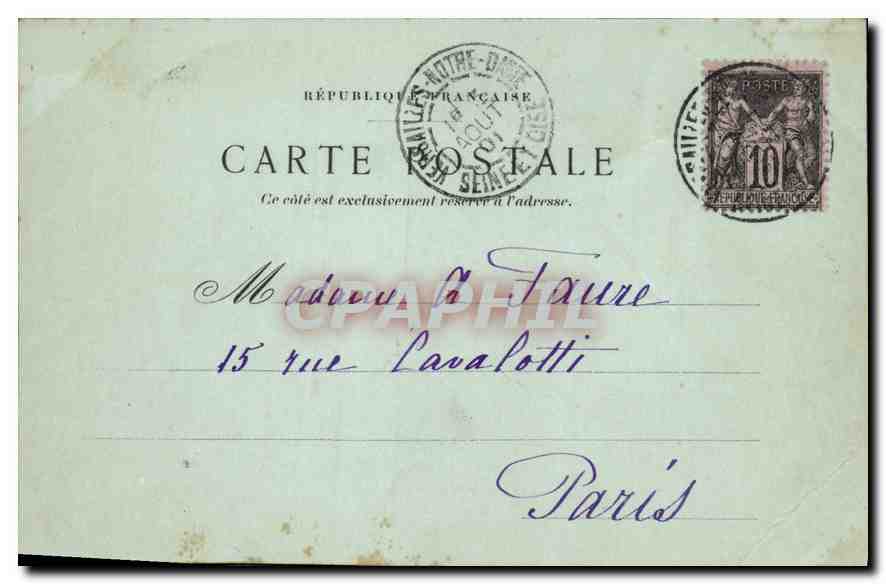 RÉPUBLIQUE FRANÇAISE
CARTE POSTALE
Ce côté est exclusivement réservé à l'adresse.
VERSAILLES-NOTRE-DAME
AOUT
01
SEINE-ET-OISE
POSTE
10
REPUBLIQUE FRANÇAISE
Madame A Faure
15 rue Cavalotti
Paris
CPAPHIL